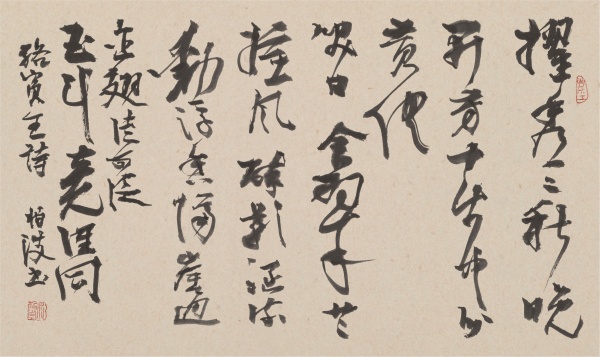 擢秀三秋晚
开芳十步中分
黄俱
笑日含翠共
摇风碎影涵流
動浮香隔岸通
金翘徒可泛
玉斝竟谁同
骆宾王詩 柏波书